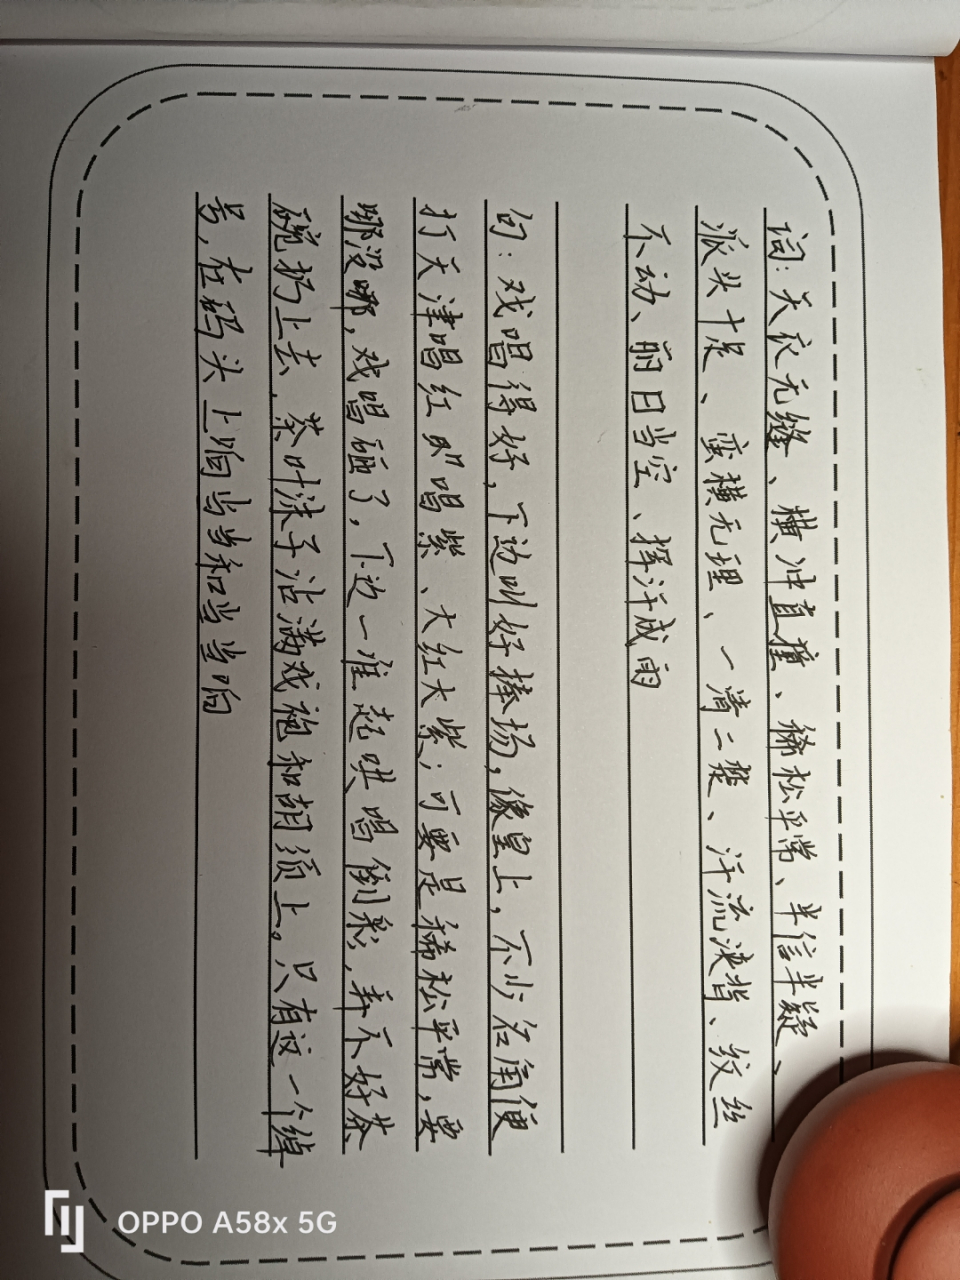 词：天衣无缝、横冲直撞、稀松平常、半信半疑、
派头十足、蛮横无理、一清二楚、汗流浃背、纹丝
不动、丽日当空、挥汗成雨
句：戏唱得好，下边叫好捧场，像皇上，不少名角便
打天津唱红唱紫、大红大紫；可要是稀松平常，要
哪没哪，戏唱砸了，下边一准起哄唱倒彩，弄不好茶
碗扔上去，茶叶沫子沾满戏袍和胡须上。只有这一个绰
号，在码头上响当当和当当响
OPPO A58x 5G